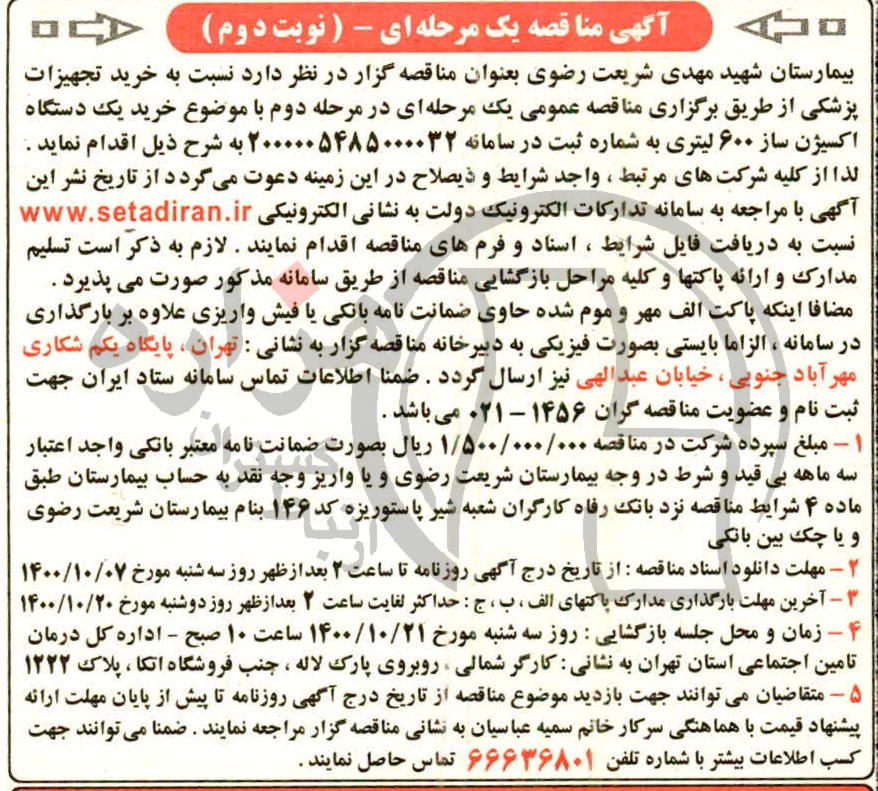 آگهی مناقصه یک مرحله‌ای - ( نوبت دوم )
بیمارستان شهید مهدی شریعت رضوی بعنوان مناقصه گزار در نظر دارد نسبت به خرید تجهیزات
پزشکی از طریق برگزاری مناقصه عمومی یک مرحله‌ای در مرحله دوم با موضوع خرید یک دستگاه
اکسیژن ساز ۶۰۰ لیتری به شماره ثبت در سامانه ۲۰۰۰۰۰۵۴۸۵۰۰۰۰۳۲ به شرح ذیل اقدام نماید .
لذا از کلیه شرکت های مرتبط ، واجد شرایط و ذیصلاح در این زمینه دعوت می‌گردد از تاریخ نشر این
آگهی با مراجعه به سامانه تدارکات الکترونیک دولت به نشانی الکترونیکی www.setadiran.ir
نسبت به دریافت فایل شرایط ، اسناد و فرم های مناقصه اقدام نمایند . لازم به ذکر است تسلیم
مدارک و ارائه پاکتها و کلیه مراحل بازگشایی مناقصه از طریق سامانه مذکور صورت می پذیرد .
مضافا اینکه پاکت الف مهر و موم شده حاوی ضمانت نامه بانکی یا فیش واریزی علاوه بر بارگذاری
در سامانه ، الزاما بایستی بصورت فیزیکی به دبیرخانه مناقصه گزار به نشانی : تهران ، پایگاه یکم شکاری
مهرآباد جنوبی ، خیابان عبدالهی نیز ارسال گردد . ضمنا اطلاعات تماس سامانه ستاد ایران جهت
ثبت نام و عضویت مناقصه گران ۱۴۵۶ - ۰۲۱ می باشد .
۱ - مبلغ سپرده شرکت در مناقصه ۱/۵۰۰/۰۰۰/۰۰۰ ریال بصورت ضمانت نامه معتبر بانکی واجد اعتبار
سه ماهه بی قید و شرط در وجه بیمارستان شریعت رضوی و یا واریز وجه نقد به حساب بیمارستان طبق
ماده ۴ شرایط مناقصه نزد بانک رفاه کارگران شعبه شیر پاستوریزه کد ۱۴۶ بنام بیمارستان شریعت رضوی
و یا چک بین بانکی
۲ - مهلت دانلود اسناد مناقصه : از تاریخ درج آگهی روزنامه تا ساعت ۲ بعدازظهر روز سه شنبه مورخ ۱۴۰۰/۱۰/۰۷
۳ - آخرین مهلت بارگذاری مدارک پاکتهای الف ، ب ، ج : حداکثر لغایت ساعت ۲ بعدازظهر روز دوشنبه مورخ ۱۴۰۰/۱۰/۲۰
۴ - زمان و محل جلسه بازگشایی : روز سه شنبه مورخ ۱۴۰۰/۱۰/۲۱ ساعت ۱۰ صبح - اداره کل درمان
تامین اجتماعی استان تهران به نشانی : کارگر شمالی ، روبروی پارک لاله ، جنب فروشگاه اتکا ، پلاک ۱۲۲۲
۵ - متقاضیان می توانند جهت بازدید موضوع مناقصه از تاریخ درج آگهی روزنامه تا پیش از پایان مهلت ارائه
پیشنهاد قیمت با هماهنگی سرکار خانم سمیه عباسیان به نشانی مناقصه گزار مراجعه نمایند . ضمنا می توانند جهت
کسب اطلاعات بیشتر با شماره تلفن ۶۶۶۳۶۸۰۱ تماس حاصل نمایند .